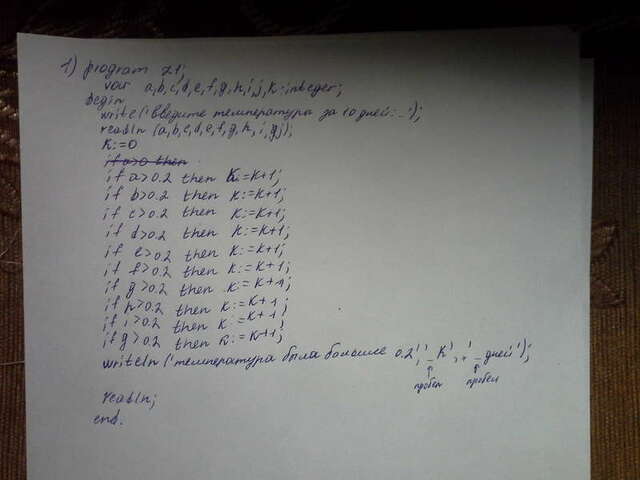 1) program z1;
var a,b,c,d,e,f,g,h,i,j,k:integer;
begin
write('введите температура за 10 дней: _');
readln (a,b,c,d,e,f,g,h,i,gj);
K:=0
if a>0 then
if a>0.2 then K:=K+1;
if b>0.2 then K:=K+1;
if c>0.2 then K:=K+1;
if d>0.2 then K:=K+1;
if e>0.2 then K:=K+1;
if f>0.2 then K:=K+1;
if g>0.2 then K:=K+1;
if h>0.2 then K:=K+1;
if i>0.2 then K:=K+1;
if g>0.2 then K:=K+1;
writeln ('температура была больше 0.2',_K,'_дней');
пробел пробел
readln;
end.